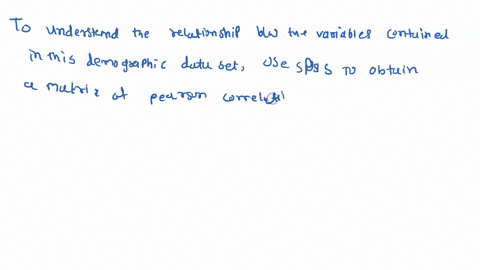 To understand the relationship b/w the variables contained
in this demographic data set, use SPSS to obtain
a matrix of pearson correlati